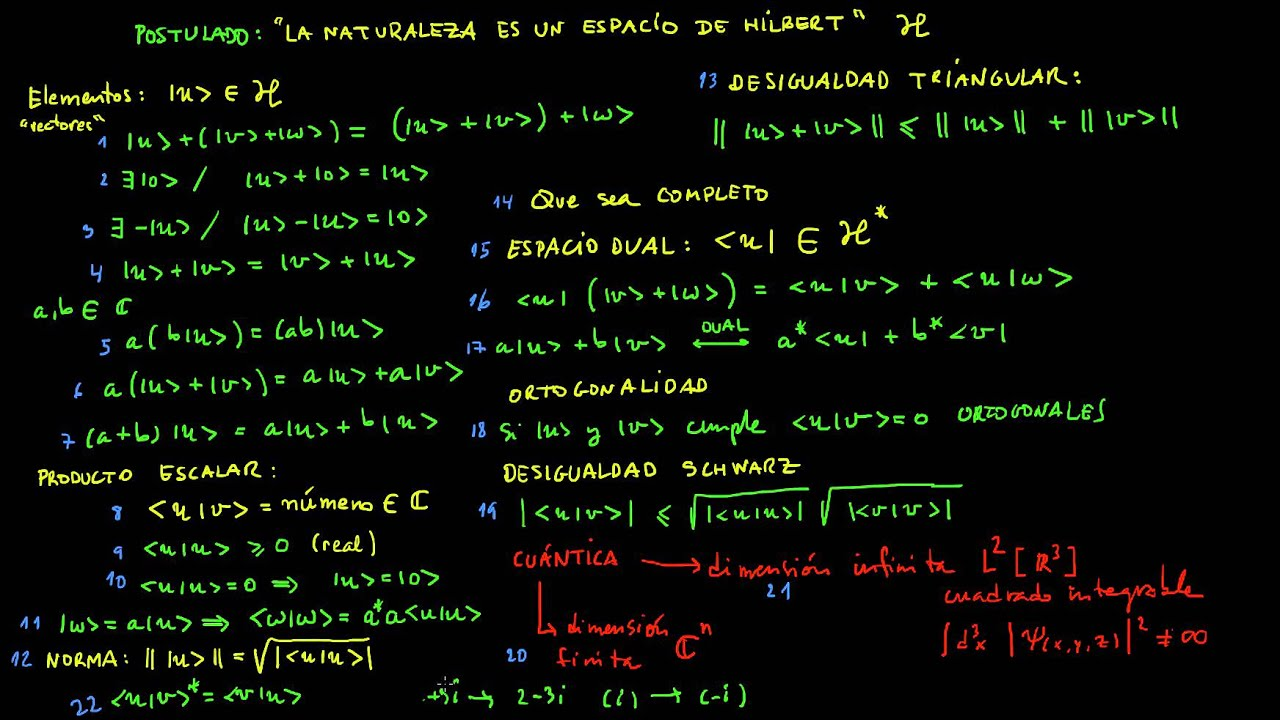 POSTULADO: "LA NATURALEZA ES UN ESPACÍO DE HÍLBERT" ℋ
Elementos: |u> ∈ ℋ
"vectores"
1 |u>+(|v>+|w>) = (|u>+|v>)+|w>
2 ∃|0> / |u>+|0>=|u>
3 ∃-|u> / |u>-|u>=|0>
4 |u>+|v> = |v>+|u>
a,b ∈ ℂ
5 a(b|u>) = (ab)|u>
6 a(|u>+|v>) = a|u>+a|v>
7 (a+b)|u> = a|u>+b|u>
PRODUCTO ESCALAR:
8 <u|v> = número ∈ ℂ
9 <u|u> ⩾ 0 (real)
10 <u|u>=0 ⇒ |u>=|0>
11 |w>=a|u> ⇒ <w|w>=a*a<u|u>
12 NORMA: || |u> || = √|<u|u>|
22 <u|v>*=<v|u>
13 DESIGUALDAD TRÍANGULAR:
|| |u>+|v> || ⩽ || |u> || + || |v> ||
14 Que sea COMPLETO
15 ESPACÍO DUAL: <u| ∈ ℋ*
16 <u| (|v>+|w>) = <u|v> + <u|w>
17 a|u>+b|v> ⟷ DUAL a*<u| + b*<v|
ORTOGONALIDAD
18 Si |u> y |v> cumple <u|v>=0 ORTOGONALES
DESIGUALDAD SCHWARZ
19 |<u|v>| ⩽ √|<u|u>| √|<v|v>|
CUÁNTICA ⟶ dimensión infinita L²[ℝ³]
21 cuadrado integrable
∫d³x |Ψ(x,y,z)|² ≠ ∞
↳ dimensión
20 finita ℂⁿ
+3i → 2-3i (i) → (-i)